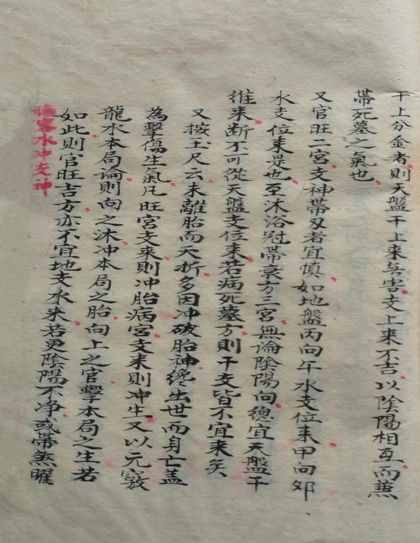 干上分金者則天盤干上来与害支上来不吉以陰陽相亙而兼
帶死墓之氣也
又官旺二宮支神帶刄者宜慎如地盤丙向午水支位来甲向夘
水支位来是也至沐浴冠帶衰方三宮無論陰陽向總宜天盤干
維来断不可從天盤支位来若病死墓方則干支皆不宜来矣
又按玉尺云未離胎而夭折多因冲破胎神纔出世而身亡盖
為擊傷生氣凡旺宮支来則冲胎病宮支来則冲生又以元竅
龍水本局論則向之沐冲本局之胎向上之官擊本局之生若
如此則官旺吉方亦不宜地支水来若更陰陽不净或帶煞曜
水冲支神